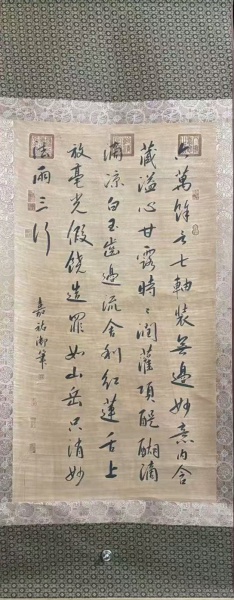 六萬餘言七軸裝無邊妙意內含
藏溢心甘露時時潤灌頂醍醐滴
滴涼白玉齒邊流舍利紅蓮舌上
放毫光假饒造罪如山岳只消妙
法兩三行
嘉祐御筆